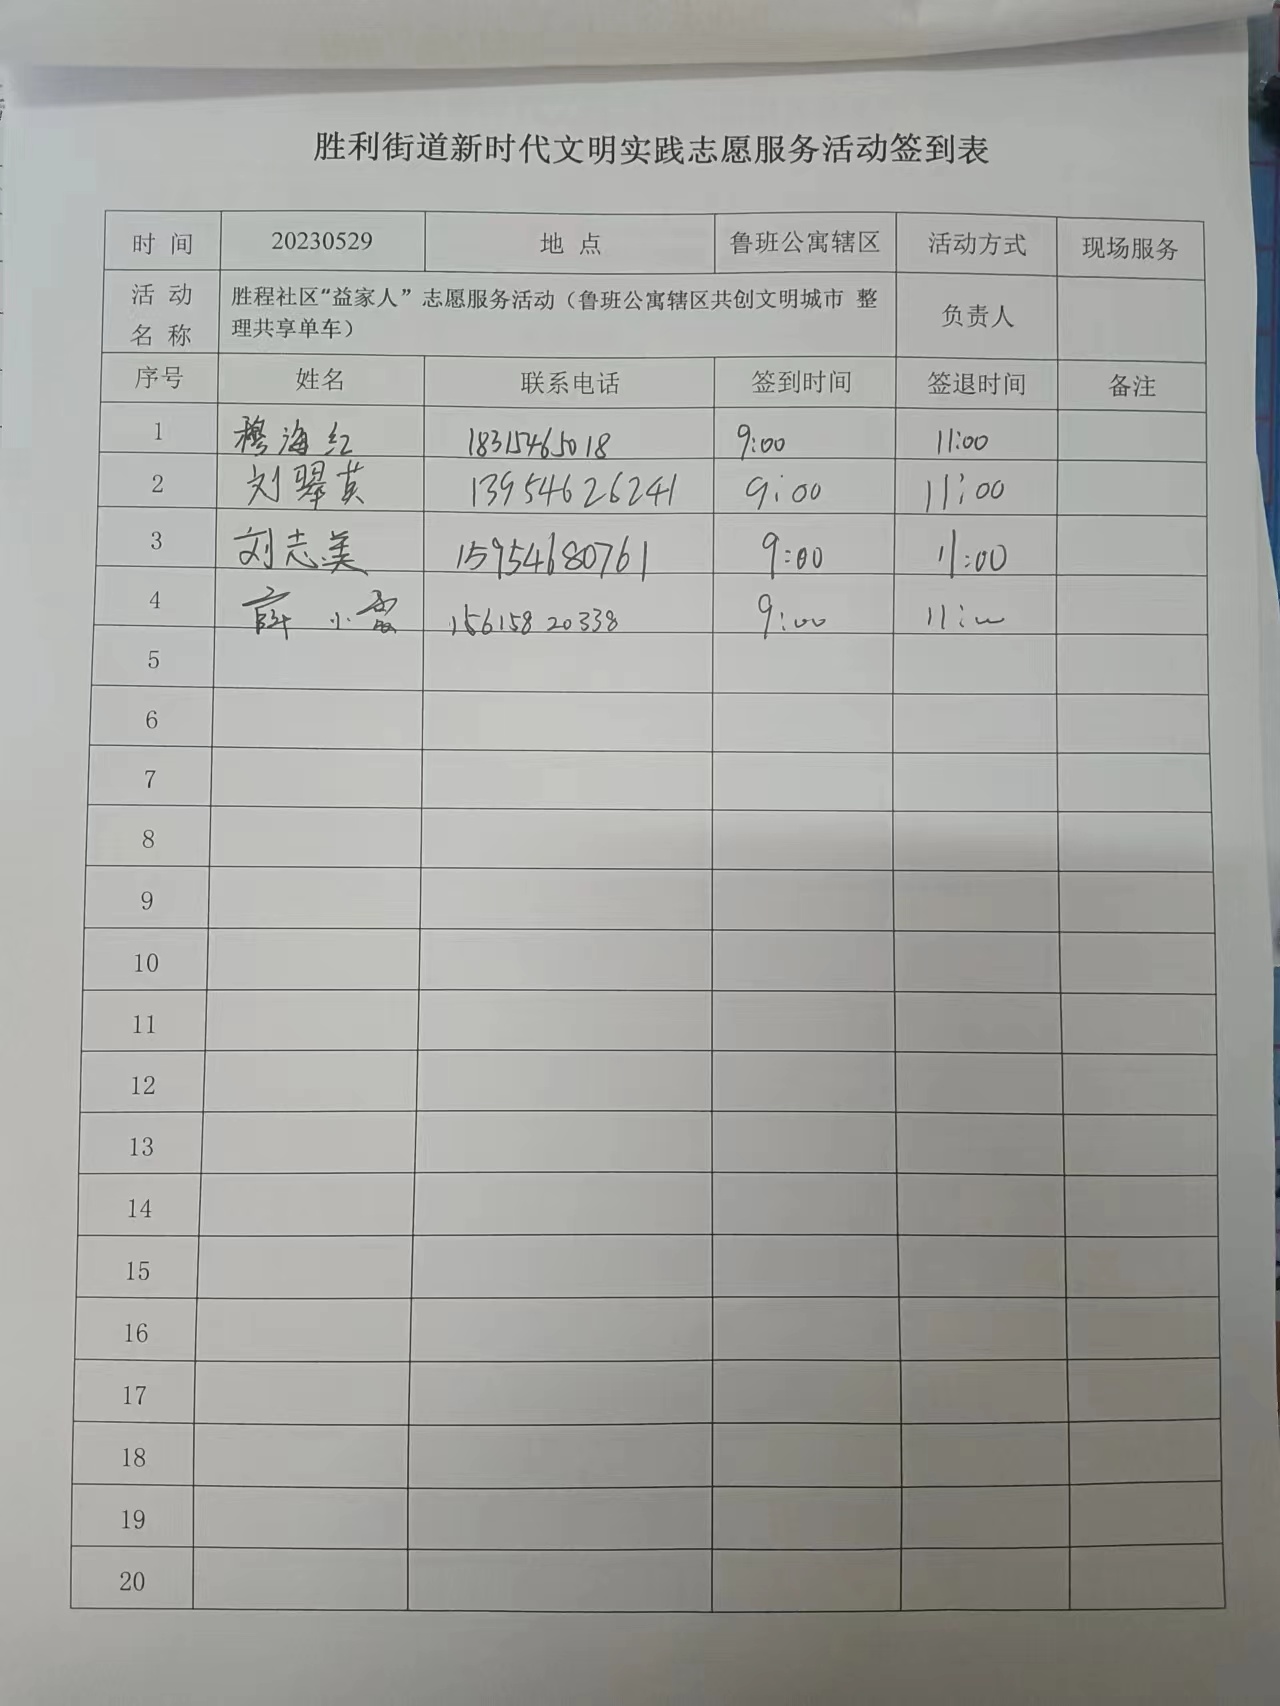 胜利街道新时代文明实践志愿服务活动签到表
时 间 20230529 地 点 鲁班公寓辖区 活动方式 现场服务
活 动 名 称 胜程社区“益家人”志愿服务活动（鲁班公寓辖区共创文明城市 整
理共享单车） 负责人
序号 姓名 联系电话 签到时间 签退时间 备注
1 穆海红 18315465018 9:00 11:00
2 刘翠英 13954626241 9:00 11:00
3 刘志美 15954680761 9:00 11:00
4 薛小雪 15615820338 9:00 11:00
5
6
7
8
9
10
11
12
13
14
15
16
17
18
19
20